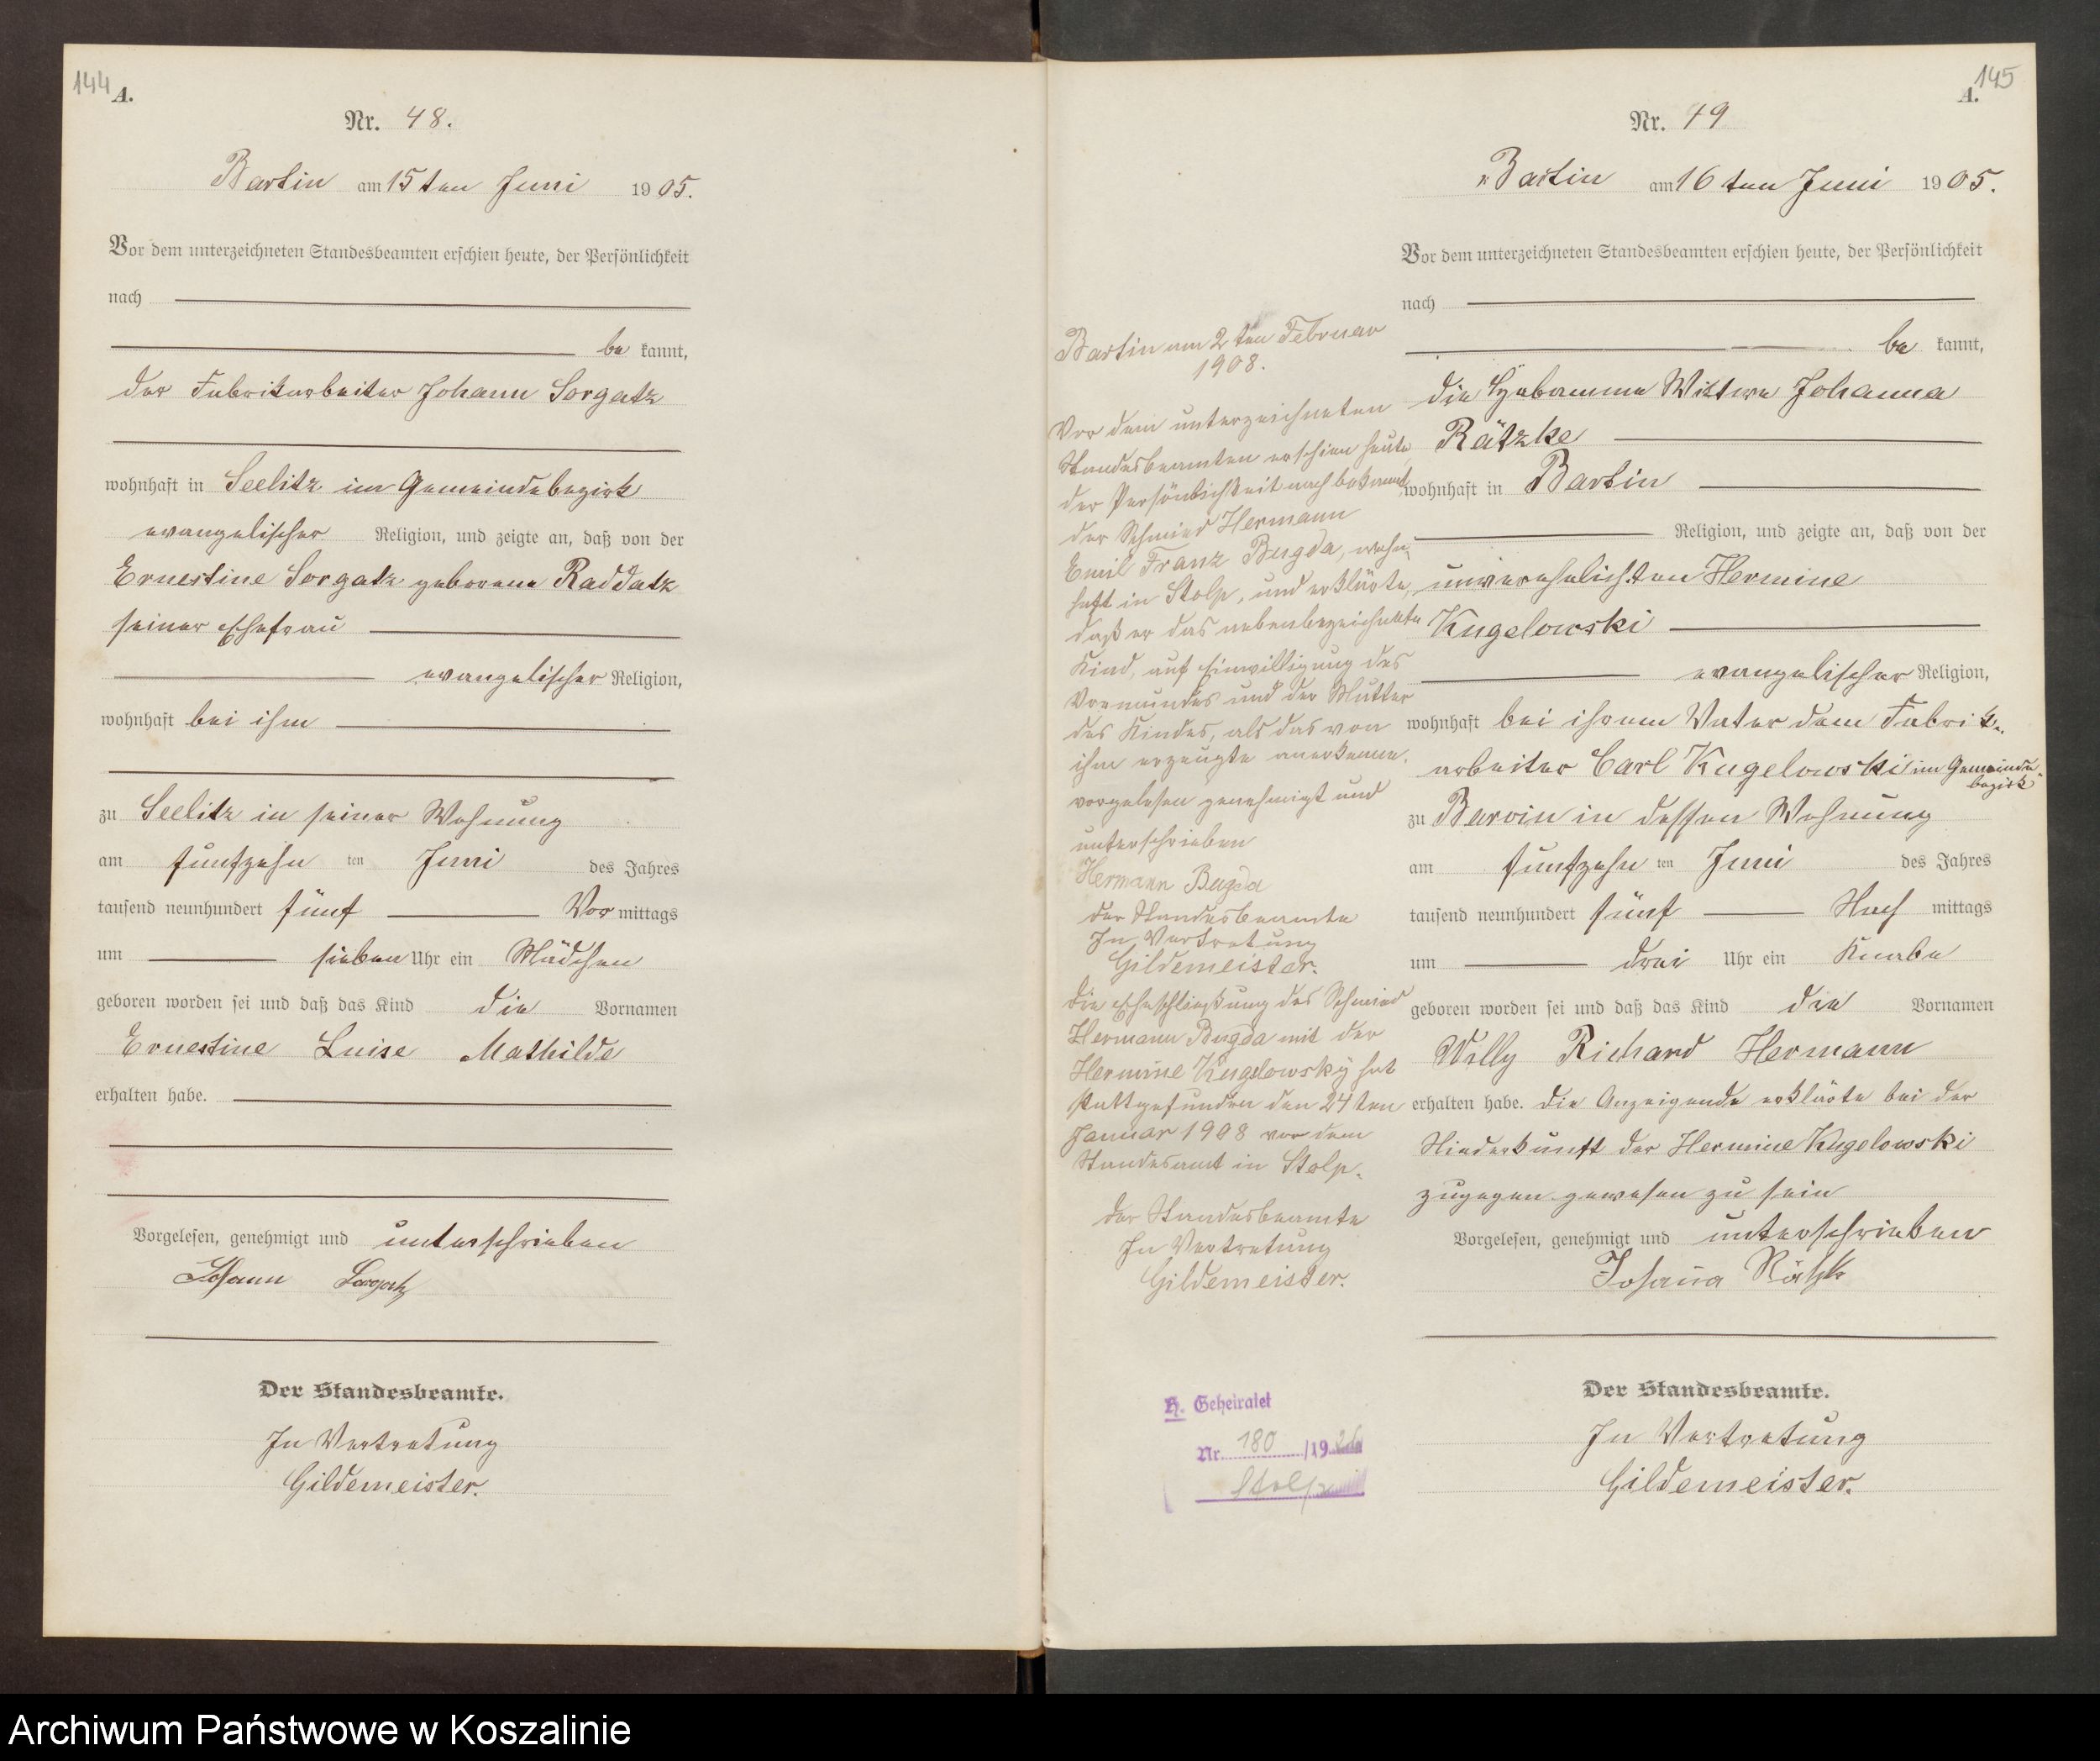 144
A.
Nr. 48.
Bartin am 15ten Juni 1905.
Vor dem unterzeichneten Standesbeamten erschien heute, der Persönlichkeit
nach
be kannt,
der Fabrikarbeiter Johann Sorgatz
wohnhaft in Seelitz im Gemeindebezirk
evangelischer Religion, und zeigte an, daß von der
Ernestine Sorgatz geborene Raddatz
seiner Ehefrau
evangelischer Religion,
wohnhaft bei ihm
zu Seelitz in seiner Wohnung
am fünfzehn ten Juni des Jahres
tausend neunhundert fünf Vor mittags
um sieben Uhr ein Mädchen
geboren worden sei und daß das Kind die Vornamen
Ernestine Luise Mathilde
erhalten habe.
Vorgelesen, genehmigt und unterschrieben
Johann Sorgatz
Der Standesbeamte.
In Vertretung
Gildemeister.
145
A.
Nr. 49
Bartin am 16ten Juni 1905.
Vor dem unterzeichneten Standesbeamten erschien heute, der Persönlichkeit
nach
be kannt,
die Hebamme Wittwe Johanna
Rätzke
wohnhaft in Bartin
Religion, und zeigte an, daß von der
unverehelichten Hermine
Kugelowski
evangelischer Religion,
wohnhaft bei ihrem Vater dem Fabrik-
arbeiter Carl Kugelowski im Gemeinde
bezirk
zu Barvin in dessen Wohnung
am fünfzehn ten Juni des Jahres
tausend neunhundert fünf Nach mittags
um drei Uhr ein Knabe
geboren worden sei und daß das Kind die Vornamen
Willy Richard Hermann
erhalten habe. Die Anzeigende erklärte bei der
Niederkunft der Hermine Kugelowski
zugegen gewesen zu sein
Vorgelesen, genehmigt und unterschrieben
Johanna Rätzke
Der Standesbeamte.
In Vertretung
Gildemeister.
Bartin am 2ten Februar
1908.
Vor dem unterzeichneten
Standesbeamten erschien heute,
der Persönlichkeit nach bekannt,
der Schmied Hermann
Emil Franz Bugda, wohn-
haft in Stolp, und erklärte,
daß er das nebenbezeichnete
Kind, auf Einwilligung des
Vormundes und der Mutter
des Kindes, als das von
ihm erzeugte anerkenne.
vorgelesen genehmigt und
unterschrieben
Hermann Bugda
der Standesbeamte
In Vertretung
Gildemeister.
Die Eheschließung des Schmied
Hermann Bugda mit der
Hermine Kugelowsky hat
stattgefunden den 24ten
Januar 1908 vor dem
Standesamt in Stolp.
Der Standesbeamte
In Vertretung
Gildemeister.
H. Geheiratet
Nr. 180 /19
Stolp
Archiwum Państwowe w Koszalinie